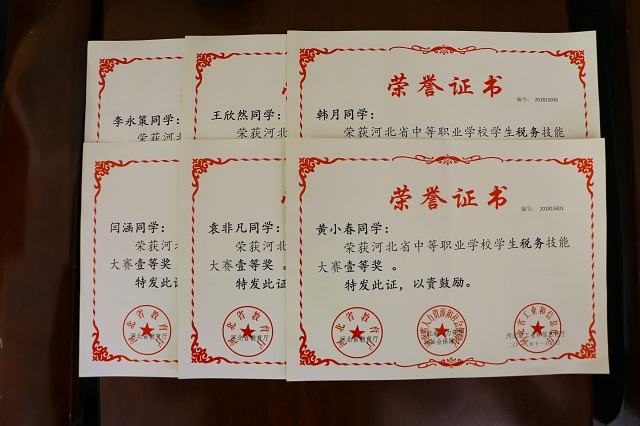 李永策同学：
荣获河
王欣然同学：
荣获河北
荣誉证书
编号： 201815036
韩月同学：
荣获河北省中等职业学校学生税务技能
闫涵同学：
荣获河
大赛壹等奖
特发此证
河北省教育厅
袁非凡同学：
荣获河北
大赛壹等奖 。
特发此证
河北省教育厅
荣誉证书
编号： 201815001
黄小春同学：
荣获河北省中等职业学校学生税务技能
大赛壹等奖 。
特发此证，以资鼓励。